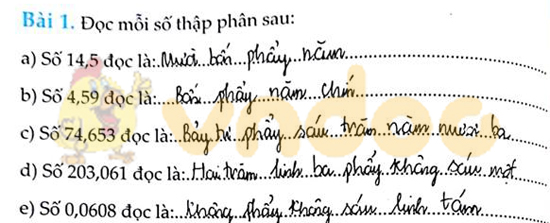 Bài 1. Đọc mỗi số thập phân sau:
a) Số 14,5 đọc là: Mười bốn phẩy năm
b) Số 4,59 đọc là: Bốn phẩy năm chín
c) Số 74,653 đọc là: Bảy tư phẩy sáu trăm năm mươi ba
d) Số 203,061 đọc là: Hai trăm linh ba phẩy không sáu một
e) Số 0,0608 đọc là: Không phẩy không sáu linh tám
vndoc